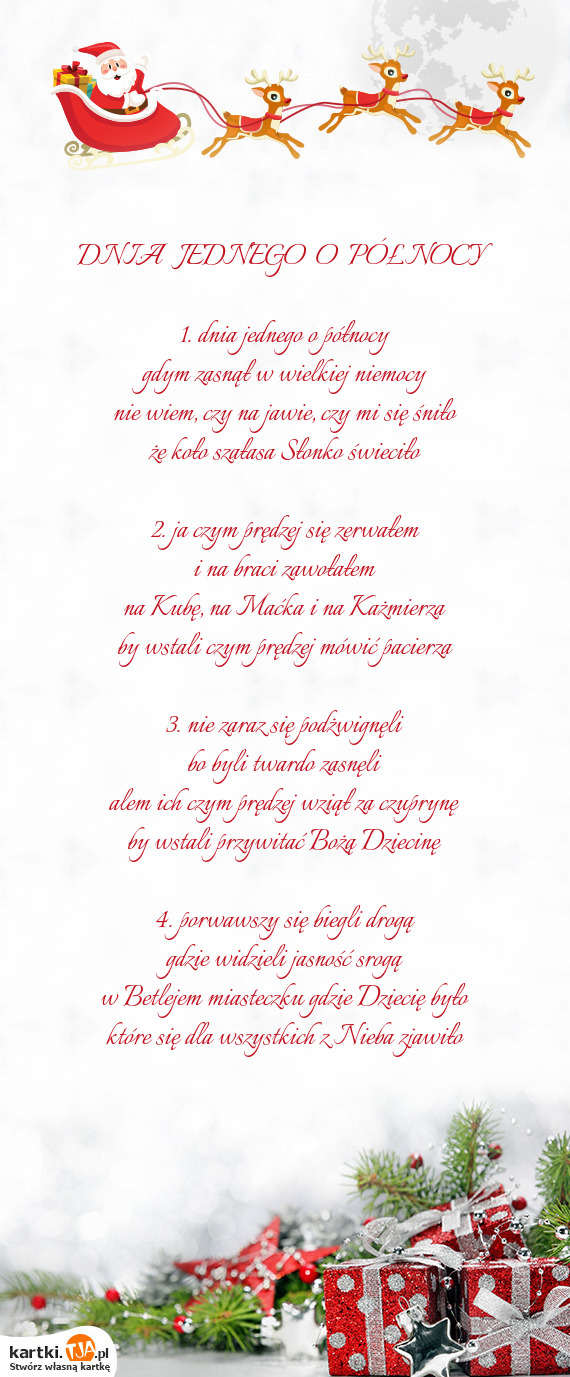 DNIA JEDNEGO O PÓŁNOCY
1. dnia jednego o północy
gdym zasnął w wielkiej niemocy
nie wiem, czy na jawie, czy mi się śniło
że koło szałasa Słonko świeciło
2. ja czym prędzej się zerwałem
i na braci zawołałem
na Kubę, na Maćka i na Kaźmierza
by wstali czym prędzej mówić pacierza
3. nie zaraz się podźwignęli
bo byli twardo zasnęli
alem ich czym prędzej wziął za czuprynę
by wstali przywitać Bożą Dziecinę
4. porwawszy się biegli drogą
gdzie widzieli jasność srogą
w Betlejem miasteczku gdzie Dziecię było
które się dla wszystkich z Nieba zjawiło
kartki.TJA.pl
Stwórz własną kartkę